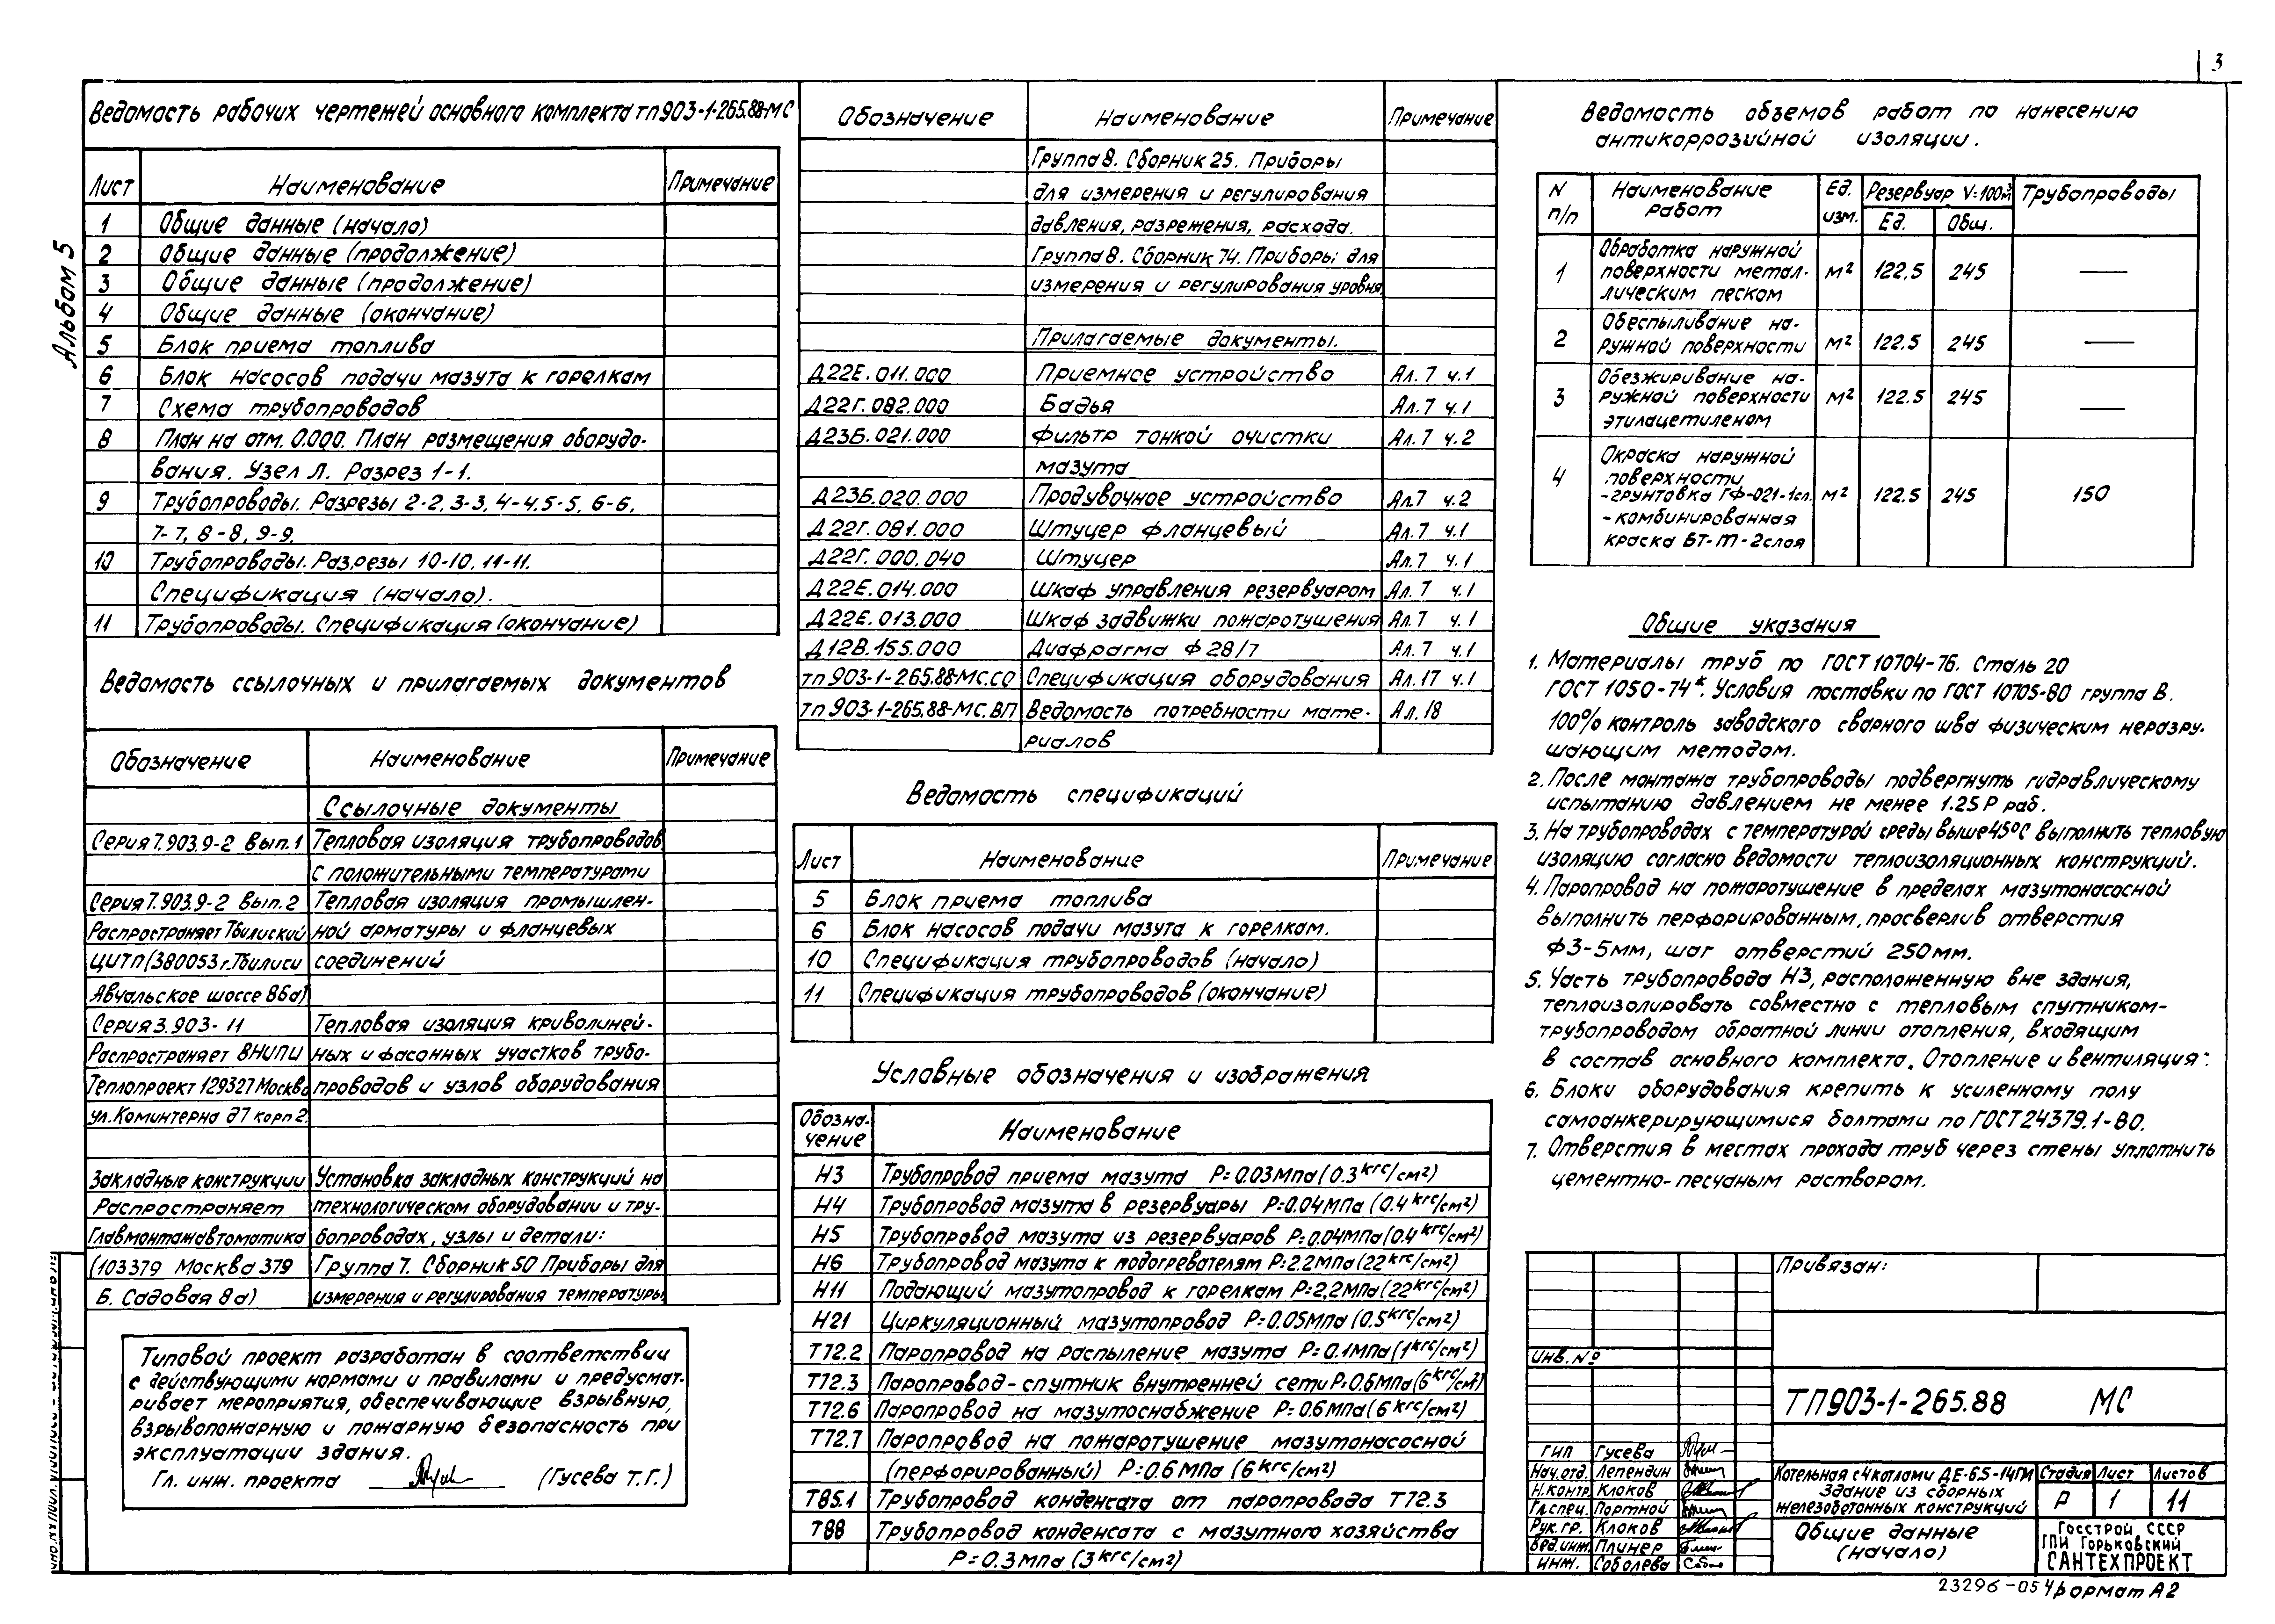 3
Альбом 5
Ведомость рабочих чертежей основного комплекта тп903-1-265.88-МС
Лист Наименование Примечание
1 Общие данные (начало)
2 Общие данные (продолжение)
3 Общие данные (продолжение)
4 Общие данные (окончание)
5 Блок приема топлива
6 Блок насосов подачи мазута к горелкам
7 Схема трубопроводов
8 План на отм. 0.000. План размещения оборудо-
вания. Узел Л. Разрез 1-1.
9 Трубопроводы. Разрезы 2-2, 3-3, 4-4, 5-5, 6-6,
7-7, 8-8, 9-9.
10 Трубопроводы. Разрезы 10-10, 11-11.
Спецификация (начало).
11 Трубопроводы. Спецификация (окончание)
Ведомость ссылочных и прилагаемых документов
Обозначение Наименование Примечание
Ссылочные документы
Серия 7.903.9-2 Вып.1 Тепловая изоляция трубопроводов
с положительными температурами
Серия 7.903.9-2 Вып.2 Тепловая изоляция промышлен-
Распространяет Тбилиский ной арматуры и фланцевых
ЦИТП (380053 г.Тбилиси соединений
Авчальское шоссе 86а)
Серия 3.903-11 Тепловая изоляция криволиней-
Распространяет ВНИПИ ных и фасонных участков трубо-
Теплопроект 129327 Москва проводов и узлов оборудования
ул.Коминтерна д7 корп 2.
Закладные конструкции Установка закладных конструкций на
Распространяет технологическом оборудовании и тру-
Главмонтажавтоматика бопроводах, узлы и детали:
(103379 Москва 379 Группа 7. Сборник 50 Приборы для
Б. Садовая 8а) измерения и регулирования температуры
Типовой проект разработан в соответствии
с действующими нормами и правилами и предусмат-
ривает мероприятия, обеспечивающие взрывную,
взрывопожарную и пожарную безопасность при
эксплуатации здания.
Гл. инж. проекта (Гусева Т.Г.)
Обозначение Наименование Примечание
Группа 8. Сборник 25. Приборы
для измерения и регулирования
давления, разрежения, расхода.
Группа 8. Сборник 74. Приборы для
измерения и регулирования уровня.
Прилагаемые документы.
Д22Е.011.000 Приемное устройство Ал. 7 ч.1
Д22Г.082.000 Бадья Ал.7 ч.1
Д23Б.021.000 Фильтр тонкой очистки Ал.7 ч.2
мазута
Д23Б.020.000 Продувочное устройство Ал7 ч.2
Д22Г.081.000 Штуцер фланцевый Ал.7 ч.1
Д22Г.000.040 Штуцер Ал.7 ч.1
Д22Е.014.000 Шкаф управления резервуаром Ал.7 ч.1
Д22Е.013.000 Шкаф задвижки пожаротушения Ал.7 ч.1
Д12В.155.000 Диафрагма Ф 28/7 Ал.7 ч.1
тп903-1-265.88-МС.СО Спецификация оборудования Ал.17 ч.1
тп903-1-265.88-МС.ВП Ведомость потребности мате- Ал.18
риалов
Ведомость спецификаций
Лист Наименование Примечание
5 Блок приема топлива
6 Блок насосов подачи мазута к горелкам.
10 Спецификация трубопроводов (начало)
11 Спецификация трубопроводов (окончание)
Условные обозначения и изображения
Обозна-
чение Наименование
Н3 Трубопровод приема мазута Р=0.03МПа (0.3 кгс/см²)
Н4 Трубопровод мазута в резервуары Р=0.04МПа (0.4 кгс/см²)
Н5 Трубопровод мазута из резервуаров Р=0.04МПа (0.4 кгс/см²)
Н6 Трубопровод мазута к подогревателям Р=2.2МПа (22 кгс/см²)
Н11 Подающий мазутопровод к горелкам Р=2,2МПа (22 кгс/см²)
Н21 Циркуляционный мазутопровод Р=0.05МПа (0.5 кгс/см²)
Т72.2 Паропровод на распыление мазута Р=0.1МПа (1 кгс/см²)
Т72.3 Паропровод-спутник внутренней сети Р=0.6МПа (6 кгс/см²)
Т72.6 Паропровод на мазутоснабжение Р=0.6МПа (6 кгс/см²)
Т72.7 Паропровод на пожаротушение мазутонасосной
(перфорированный) Р=0.6МПа (6 кгс/см²)
Т85.1 Трубопровод конденсата от паропровода Т72.3
Т88 Трубопровод конденсата с мазутного хозяйства
Р=0.3МПа (3 кгс/см²)
Ведомость обземов работ по нанесению
антикоррозийной изоляции.
N п/п Наименование работ Ед. изм. Резервуар V=100м³ Трубопроводы
Ед. Общ.
1 Обработка наружной
поверхности метал- м² 122,5 245 —
лическим песком
2 Обеспыливание на-
ружной поверхности м² 122.5 245 —
3 Обезжиривание на-
ружной поверхности м² 122.5 245 —
этилацетиленом
4 Окраска наружной
поверхности
-грунтовка ГФ-021-1сл. м² 122.5 245 150
-комбинированная
краска БТ-т-2слоя
Общие указания
1. Материалы труб по ГОСТ 10704-76. Сталь 20
ГОСТ 1050-74*. Условия поставки по ГОСТ 10705-80 группа В.
100% контроль заводского сварного шва физическим неразру-
шающим методом.
2. После монтажа трубопроводы подвергнуть гидравлическому
испытанию давлением не менее 1.25Р раб.
3. На трубопроводах с температурой среды выше 45°С выполнить тепловую
изоляцию согласно ведомости теплоизоляционных конструкций.
4. Паропровод на пожаротушение в пределах мазутонасосной
выполнить перфорированным, просверлив отверстия
Ф3-5мм, шаг отверстий 250мм.
5. Часть трубопровода Н3, расположенную вне здания,
теплоизолировать совместно с тепловым спутником-
трубопроводом обратной линии отопления, входящим
в состав основного комплекта „Отопление и вентиляция".
6. Блоки оборудования крепить к усиленному полу
самоанкерирующимися болтами по ГОСТ 24379.1-80.
7. Отверстия в местах прохода труб через стены уплотнить
цементно-песчаным раствором.
Привязан:
Инв. №
ТП903-1-265.88 МС
ГИП Гусева
Нач.отд. Лепендин
Н.контр. Клоков
Гл.спец. Портной
Рук.гр. Клоков
Вед.инж. Плинер
Инж. Соболева
Котельная с 4 котлами ДЕ-6,5-14ГМ
Здание из сборных
железобетонных конструкций
Стадия Лист Листов
Р 1 11
Общие данные
(начало)
Госстрой СССР
ГПИ Горьковский
САНТЕХПРОЕКT
23296-05 4 формат А2